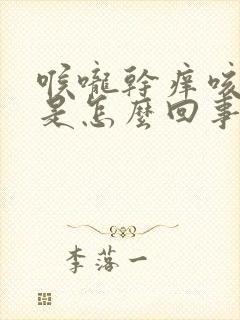 喉嚨幹痒咳
是怎麼回事
李落一